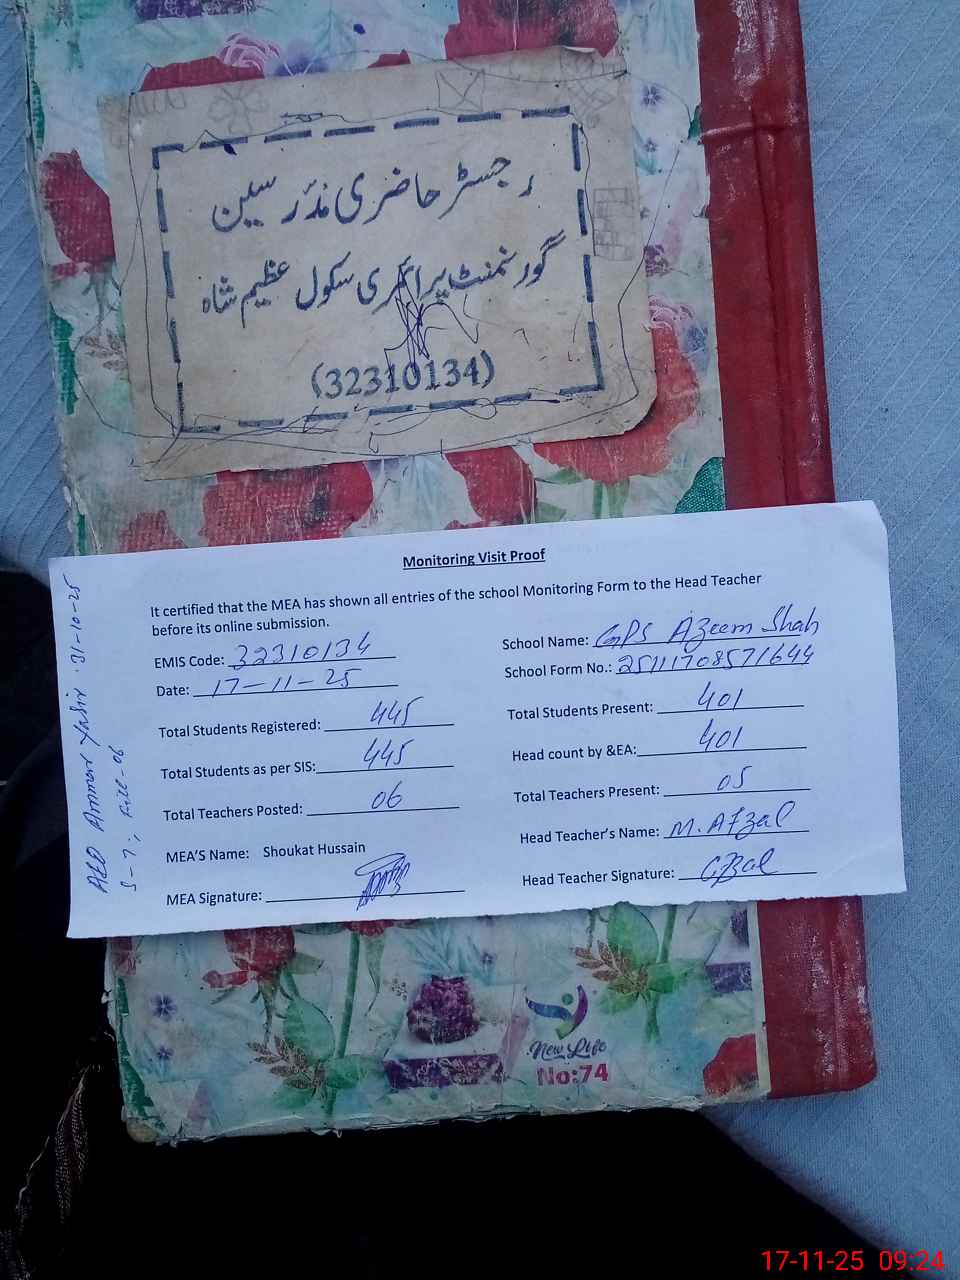 رجسٹر حاضری مدرسین
گورنمنٹ پرائمری سکول عظیم شاہ
(32310134)
Monitoring Visit Proof
It certified that the MEA has shown all entries of the school Monitoring Form to the Head Teacher
before its online submission.
EMIS Code: 32310134
School Name: GPS Azeem Shah
Date: 17-11-25
School Form No.: 25111708571644
Total Students Registered: 445
Total Students Present: 401
Total Students as per SIS: 445
Head count by &EA: 401
Total Teachers Posted: 06
Total Teachers Present: 05
MEA'S Name: Shoukat Hussain
Head Teacher's Name: M. Afzal
MEA Signature:
Head Teacher Signature: Afzal
AEO Ammar Yasir 31-10-25
S-7,
New Life
No:74
17-11-25 09:24